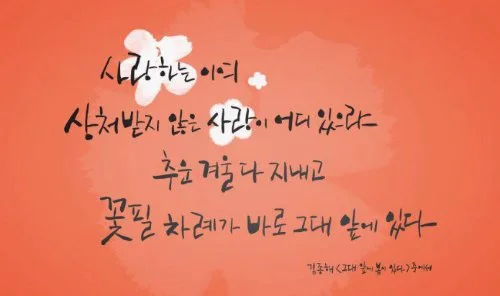 사랑하는 이여
상처받지 않은 사랑이 어디 있으랴
추운 겨울 다 지내고
꽃필 차례가 바로 그대 앞에 있다
김종해 <그대 앞에 봄이 있다> 중에서